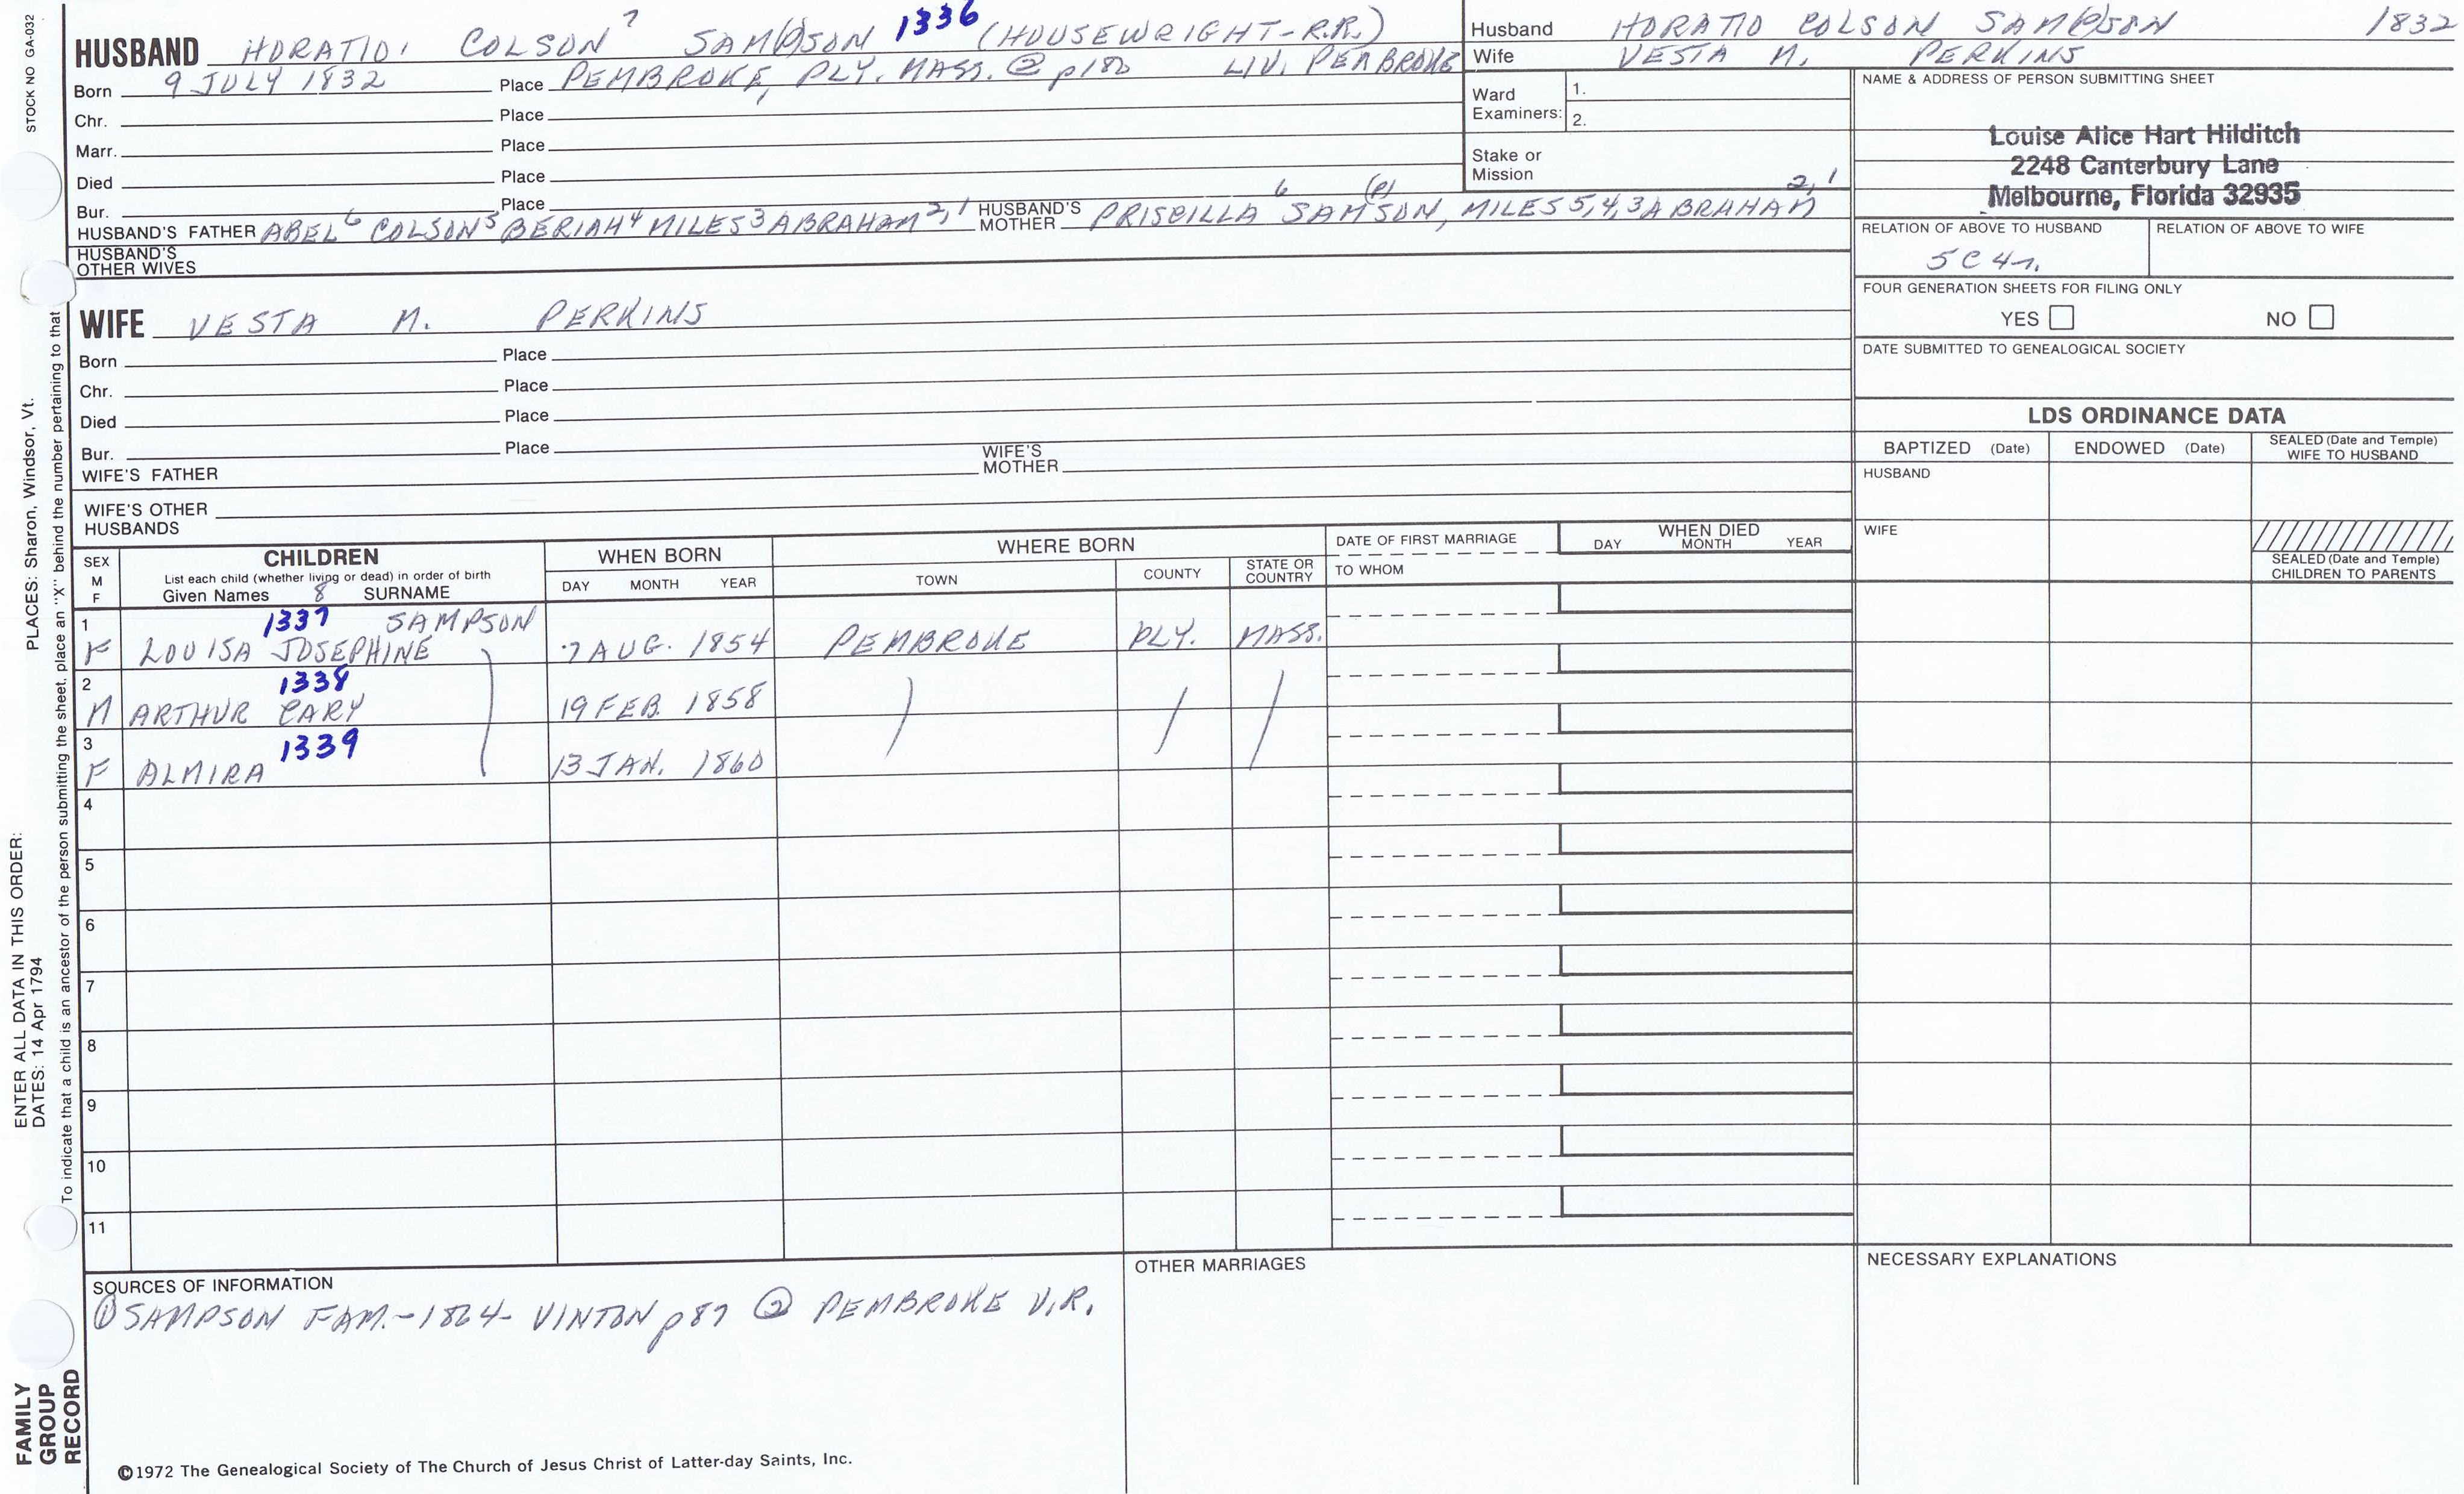 STOCK NO GA-032
HUSBAND HORATIO, COLSON 7 SAM(P)SON 1336 (HOUSEWRIGHT-R.R.)
Born 9 JULY 1832 Place PEMBROKE, PLY. MASS. @ p180 LIV. PEMBROKE
Chr. Place
Marr. Place
Died Place
Bur. Place
HUSBAND'S FATHER ABEL 6 COLSON 5 BERIAH 4 MILES 3 ABRAHAM 2,1 HUSBAND'S MOTHER PRISCILLA 6 SAM(P)SON, MILES 5,4,3 ABRAHAM 2,1
HUSBAND'S
OTHER WIVES
WIFE VESTA M. PERKINS
Born Place
Chr. Place
Died Place
Bur. Place
WIFE'S FATHER WIFE'S MOTHER
WIFE'S OTHER
HUSBANDS
Husband HORATIO COLSON SAM(P)SON 1832
Wife VESTA M. PERKINS
Ward
Examiners: 1.
2.
Stake or
Mission
NAME & ADDRESS OF PERSON SUBMITTING SHEET
Louise Alice Hart Hilditch
2248 Canterbury Lane
Melbourne, Florida 32935
RELATION OF ABOVE TO HUSBAND RELATION OF ABOVE TO WIFE
5C 4r.
FOUR GENERATION SHEETS FOR FILING ONLY
YES NO
DATE SUBMITTED TO GENEALOGICAL SOCIETY
LDS ORDINANCE DATA
BAPTIZED (Date) ENDOWED (Date) SEALED (Date and Temple)
WIFE TO HUSBAND
HUSBAND
WIFE
SEALED (Date and Temple)
CHILDREN TO PARENTS
SEX
M
F
CHILDREN
List each child (whether living or dead) in order of birth
Given Names 8 SURNAME
WHEN BORN
DAY MONTH YEAR
WHERE BORN
TOWN COUNTY STATE OR
COUNTRY
DATE OF FIRST MARRIAGE
TO WHOM
WHEN DIED
DAY MONTH YEAR
1 1337 SAMPSON
F LOUISA JOSEPHINE 7 AUG. 1854 PEMBROKE PLY. MASS.
2 1338
M ARTHUR CARY 19 FEB. 1858
3 1339
F ALMIRA 13 JAN. 1860
4
5
6
7
8
9
10
11
SOURCES OF INFORMATION
① SAMPSON FAM.-1864- VINTON p87 ② PEMBROKE V.R.
OTHER MARRIAGES
NECESSARY EXPLANATIONS
©1972 The Genealogical Society of The Church of Jesus Christ of Latter-day Saints, Inc.
ENTER ALL DATA IN THIS ORDER:
DATES: 14 Apr 1794 PLACES: Sharon, Windsor, Vt.
To indicate that a child is an ancestor of the person submitting the sheet, place an "X" behind the number pertaining to that
FAMILY
GROUP
RECORD